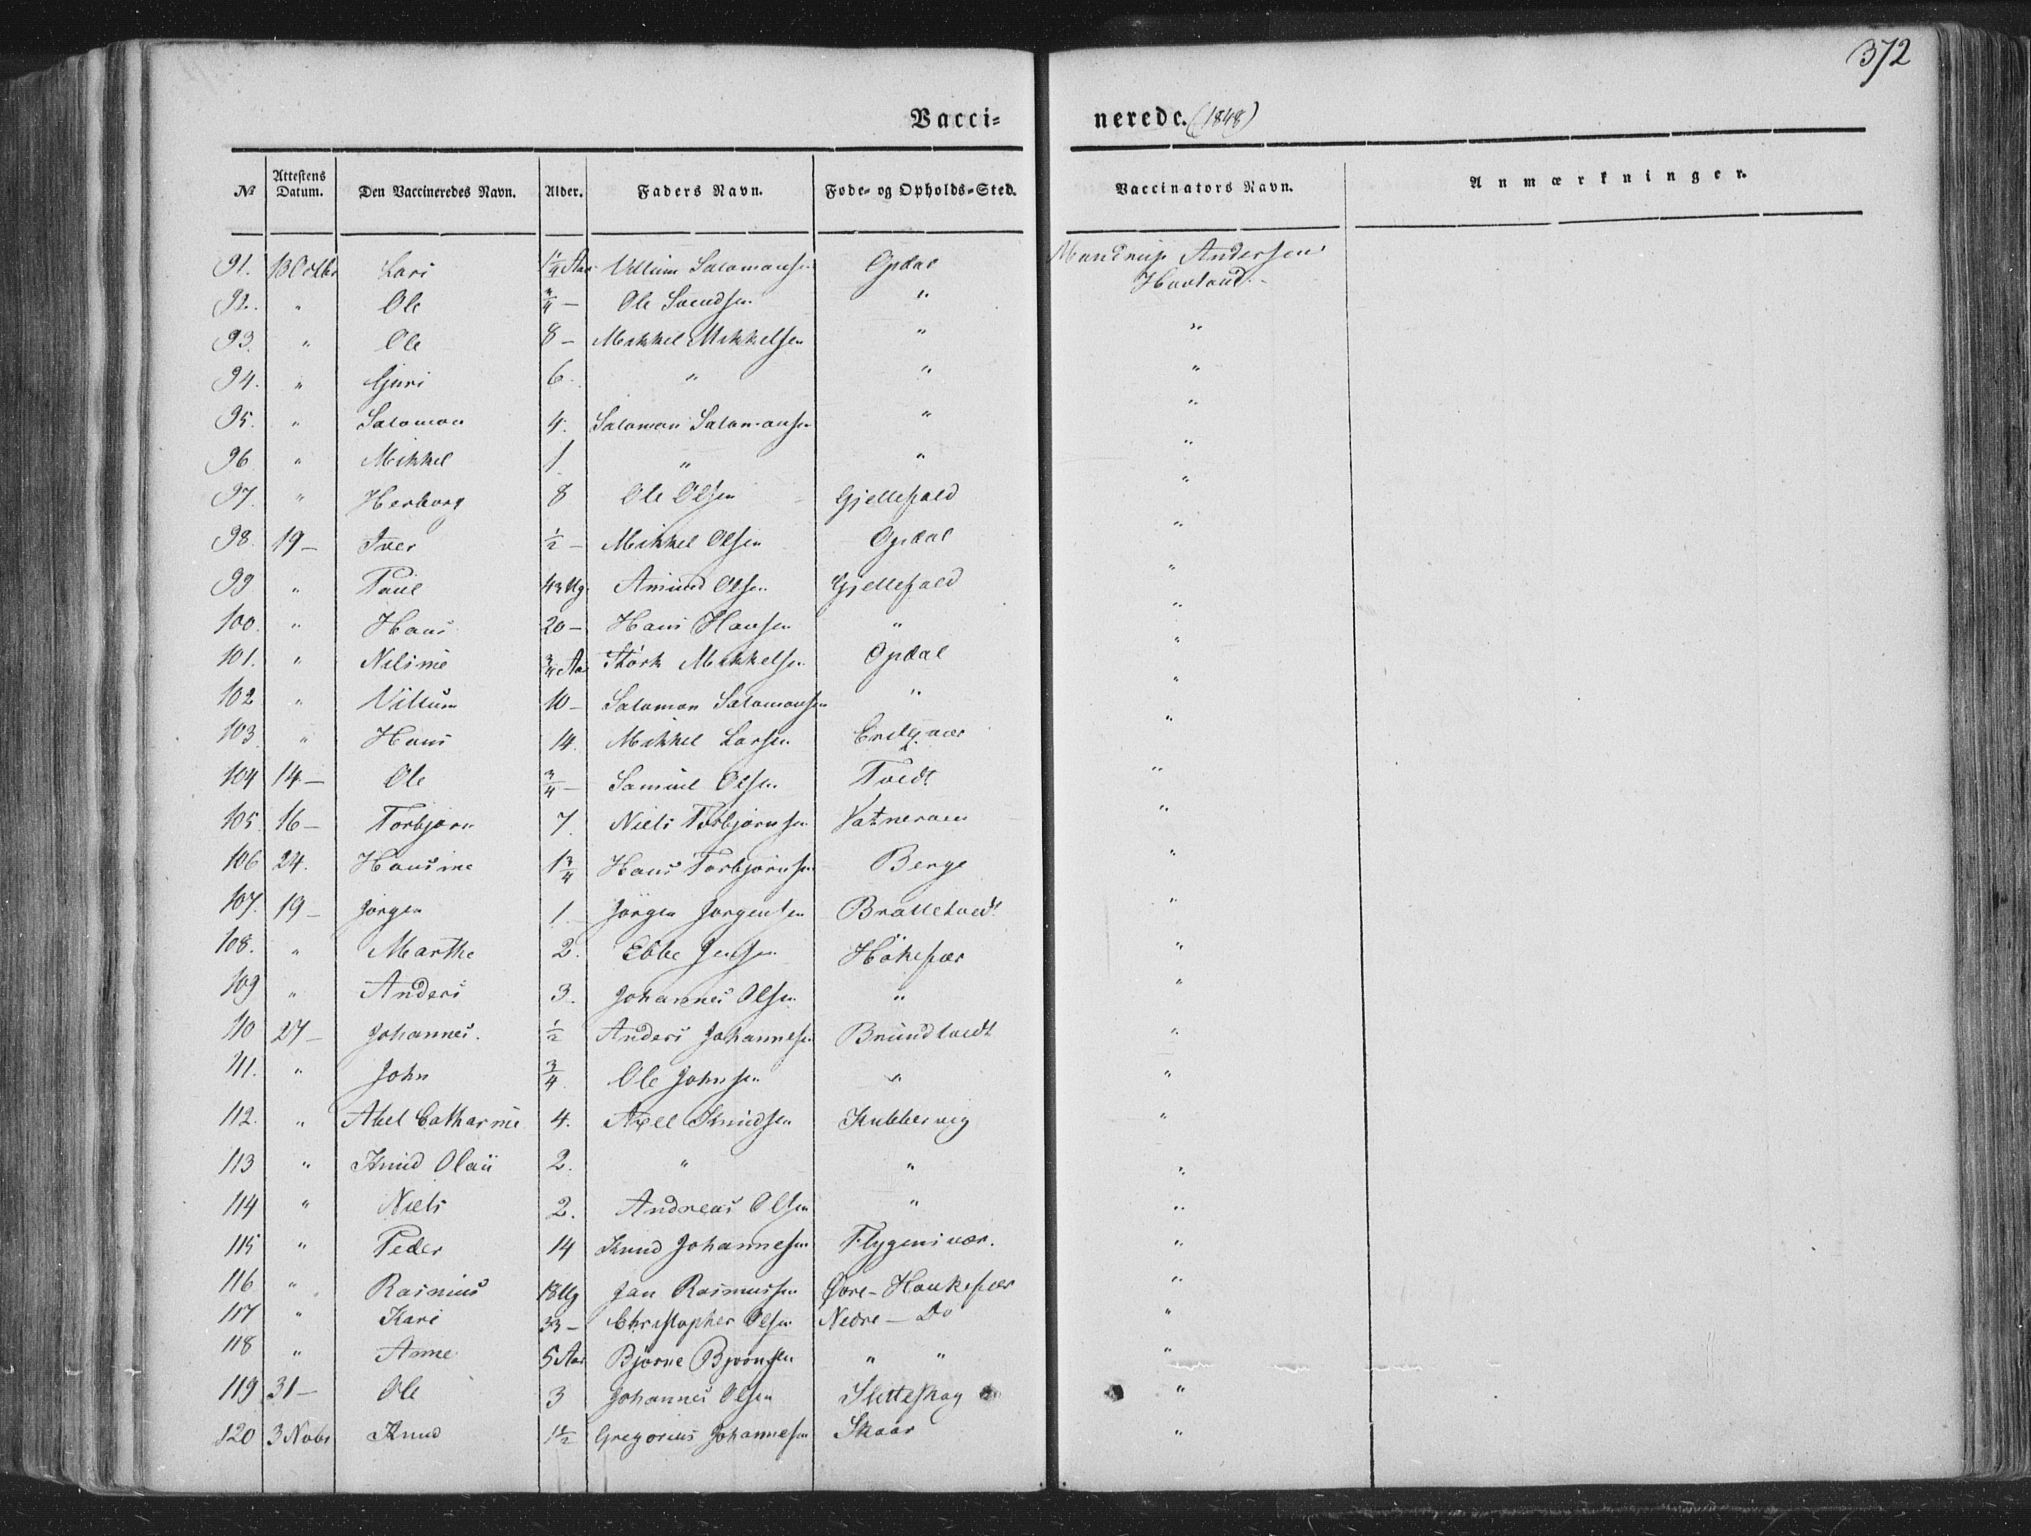 372
Vaccinerede. (1848)
№ | Attestens Datum. | Den Vaccineredes Navn. | Alder. | Faders Navn. | Føde- og Opholds-Sted. | Vaccinators Navn. | Anmærkninger.
91. | 13 Octbr | Lars | 1¼ Aar | Villum Salomonsen | Opdal | Mandrup Andersen Havland.
92. | " | Ole | ¾ – | Ole Svendsen | " | "
93. | " | Ole | 8 – | Mikkel Mikkelsen | " | "
94. | " | Guri | 6. | " | " | "
95. | " | Salomon | 4. | Salomon Salomonsen | " | "
96 | " | Mikkel | 1 | " | " | "
97. | " | Herborg | 8 | Ole Olsen | Gjellefald | "
98. | 19 – | Iver | ½ – | Mikkel Olsen | Opdal | "
99 | " | Paul | 43 Ug. | Amund Olsen | Gjellefald | "
100. | " | Hans | 20 – | Hans Hansen | " | "
101. | " | Nilsine | ¾ Aar | Størk Mikkelsen | Opdal | "
102 | " | Villum | 10 – | Salomon Salomonsen | " | "
103 | " | Hans | 14. | Mikkel Larsen | | "
104 | 14 – | Ole | ¾ – | Samuel Olsen | Tvedt | "
105 | 16 – | Torbjørn | 7. | Niels Torbjørnsen | Vatneram | "
106 | 24. | Hansine | 1¾ | Hans Torbjørnsen | Berge | "
107. | 19 – | Jørgen | 1. | Jørgen Jørgensen | Brattetvedt | "
108. | " | Marthe | 2. | Ebbe Jensen | Hökefær | "
109 | " | Anders | 3. | Johannes Olsen | " | "
110 | 27 – | Johannes. | ½ | Anders Johannesen | Brundtvedt | "
111. | " | John | ¾. | Ole Johnsen | " | "
112. | " | Abel Catharine | 4. | Axel Knudsen | Kubbervig | "
113 | " | Knud Olaii | 2. | " | " | "
114 | " | Niels | 2. | Andreas Olsen | " | "
115 | " | Peder | 14 | Knud Johannesen | Flygensvær. | "
116 | " | Rasmus | 18 Ug | Jan Rasmussen | Øvre-Haukefær | "
117 | " | Kari | 33 – | Christopher Olsen | Nedre – Do | "
118 | " | Anne | 5 Aar | Bjørne Bjørnsen | " " | "
119 | 31 – | Ole | 3 | Johannes Olsen | Sletteskog | "
120 | 3 Nobr | Knud | 1½ | Gregorius Johannesen | Skaar | "